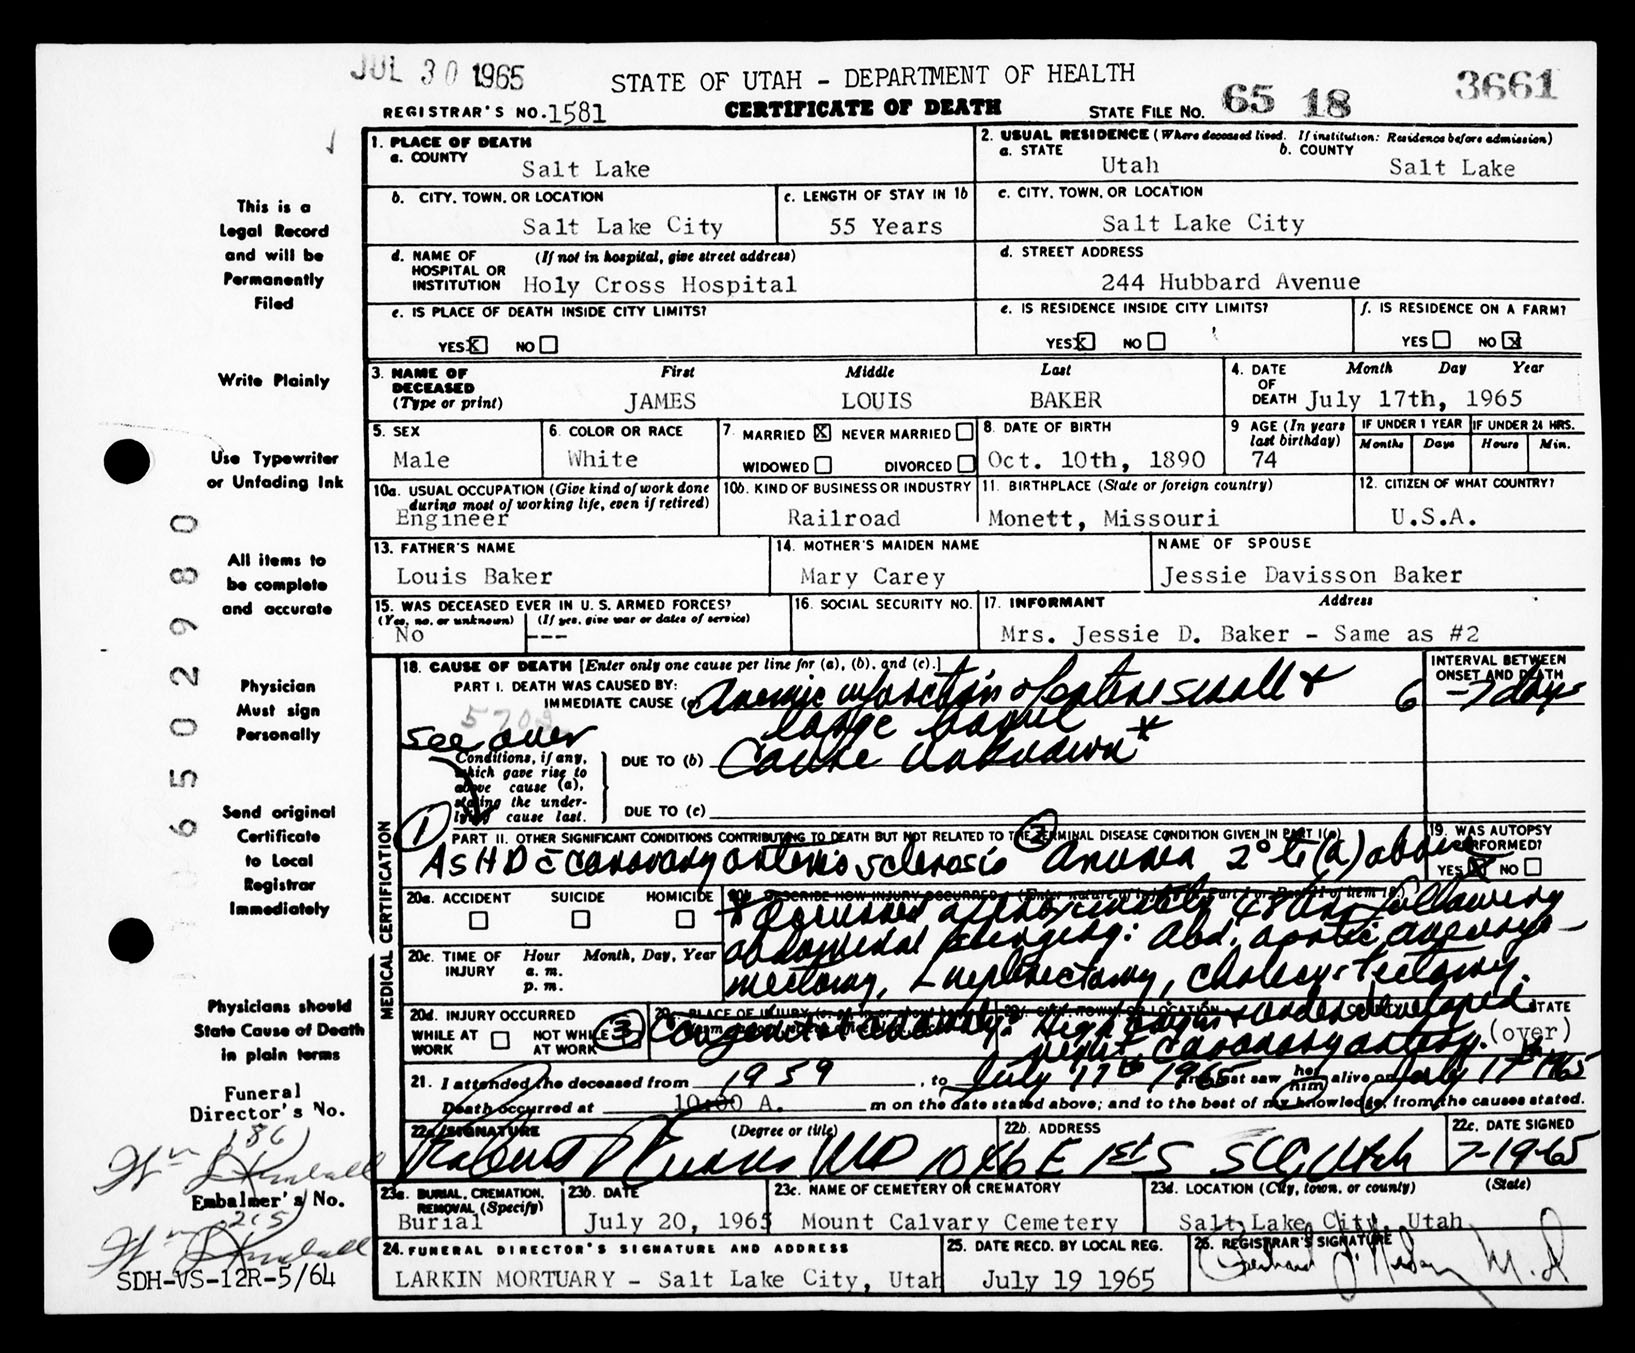 JUL 30 1965
STATE OF UTAH - DEPARTMENT OF HEALTH
3661
REGISTRAR'S NO. 1581
CERTIFICATE OF DEATH
STATE FILE NO. 65 18
This is a
Legal Record
and will be
Permanently
Filed
Write Plainly
Use Typewriter
or Unfading Ink
All items to
be complete
and accurate
Physician
Must sign
Personally
Send original
Certificate
to Local
Registrar
Immediately
Physicians should
State Cause of Death
in plain terms
Funeral
Director's No.
186
Wm Kimball
Embalmer's No.
215
Wm Kimball
SDH-VS-12R-5/64
06502980
1. PLACE OF DEATH
a. COUNTY
Salt Lake
2. USUAL RESIDENCE (Where deceased lived. If institution: Residence before admission)
a. STATE
Utah
b. COUNTY
Salt Lake
b. CITY, TOWN, OR LOCATION
Salt Lake City
c. LENGTH OF STAY IN 1b
55 Years
c. CITY, TOWN, OR LOCATION
Salt Lake City
d. NAME OF HOSPITAL OR INSTITUTION (If not in hospital, give street address)
Holy Cross Hospital
d. STREET ADDRESS
244 Hubbard Avenue
e. IS PLACE OF DEATH INSIDE CITY LIMITS?
YES X NO
e. IS RESIDENCE INSIDE CITY LIMITS?
YES X NO
f. IS RESIDENCE ON A FARM?
YES NO X
3. NAME OF DECEASED (Type or print)
First Middle Last
JAMES LOUIS BAKER
4. DATE OF DEATH
Month Day Year
July 17th, 1965
5. SEX
Male
6. COLOR OR RACE
White
7. MARRIED X NEVER MARRIED
WIDOWED DIVORCED
8. DATE OF BIRTH
Oct. 10th, 1890
9 AGE (In years last birthday)
74
IF UNDER 1 YEAR
Months Days
IF UNDER 24 HRS.
Hours Min.
10a. USUAL OCCUPATION (Give kind of work done during most of working life, even if retired)
Engineer
10b. KIND OF BUSINESS OR INDUSTRY
Railroad
11. BIRTHPLACE (State or foreign country)
Monett, Missouri
12. CITIZEN OF WHAT COUNTRY?
U.S.A.
13. FATHER'S NAME
Louis Baker
14. MOTHER'S MAIDEN NAME
Mary Carey
NAME OF SPOUSE
Jessie Davisson Baker
15. WAS DECEASED EVER IN U.S. ARMED FORCES?
(Yes, no, or unknown) (If yes, give war or dates of service)
No ---
16. SOCIAL SECURITY NO.
17. INFORMANT Address
Mrs. Jessie D. Baker - Same as #2
18. CAUSE OF DEATH [Enter only one cause per line for (a), (b), and (c).]
INTERVAL BETWEEN ONSET AND DEATH
PART I. DEATH WAS CAUSED BY:
IMMEDIATE CAUSE (a) Anemic infarction of entire small &
6-7 days
large bowel
see over
Conditions, if any, which gave rise to above cause (a), stating the underlying cause last.
DUE TO (b) Cause unknown*
DUE TO (c)
PART II. OTHER SIGNIFICANT CONDITIONS CONTRIBUTING TO DEATH BUT NOT RELATED TO THE TERMINAL DISEASE CONDITION GIVEN IN PART I(a)
(1) ASHD c coronary arteriosclerosis (2) Anuria 2° to (a) above
19. WAS AUTOPSY PERFORMED?
YES X NO
MEDICAL CERTIFICATION
20a. ACCIDENT SUICIDE HOMICIDE
20b. DESCRIBE HOW INJURY OCCURRED. (Enter nature of injury in Part I or Part II of item 18.)
* Occurred approximately 48 hrs following
abdominal surgery: Abd. aortic aneurys-
mectomy, L nephrectomy, cholecystectomy.
20c. TIME OF INJURY
Hour Month, Day, Year
a. m.
p. m.
20d. INJURY OCCURRED
WHILE AT WORK NOT WHILE AT WORK
STATE
(3) Congenital anomaly: High origin & underdeveloped
right coronary artery.
(over)
21. I attended the deceased from 1959, to July 17th 1965 and last saw him alive on July 17th 1965
Death occurred at 10:00 A. m on the date stated above; and to the best of my knowledge, from the causes stated.
22a. SIGNATURE (Degree or title)
Robert Evans MD
22b. ADDRESS
10x6 E 1st S SLC, Utah
22c. DATE SIGNED
7-19-65
23a. BURIAL, CREMATION, REMOVAL (Specify)
Burial
23b. DATE
July 20, 1965
23c. NAME OF CEMETERY OR CREMATORY
Mount Calvary Cemetery
23d. LOCATION (City, town, or county) (State)
Salt Lake City, Utah
24. FUNERAL DIRECTOR'S SIGNATURE AND ADDRESS
LARKIN MORTUARY - Salt Lake City, Utah
25. DATE RECD. BY LOCAL REG.
July 19 1965
26. REGISTRAR'S SIGNATURE
M.D